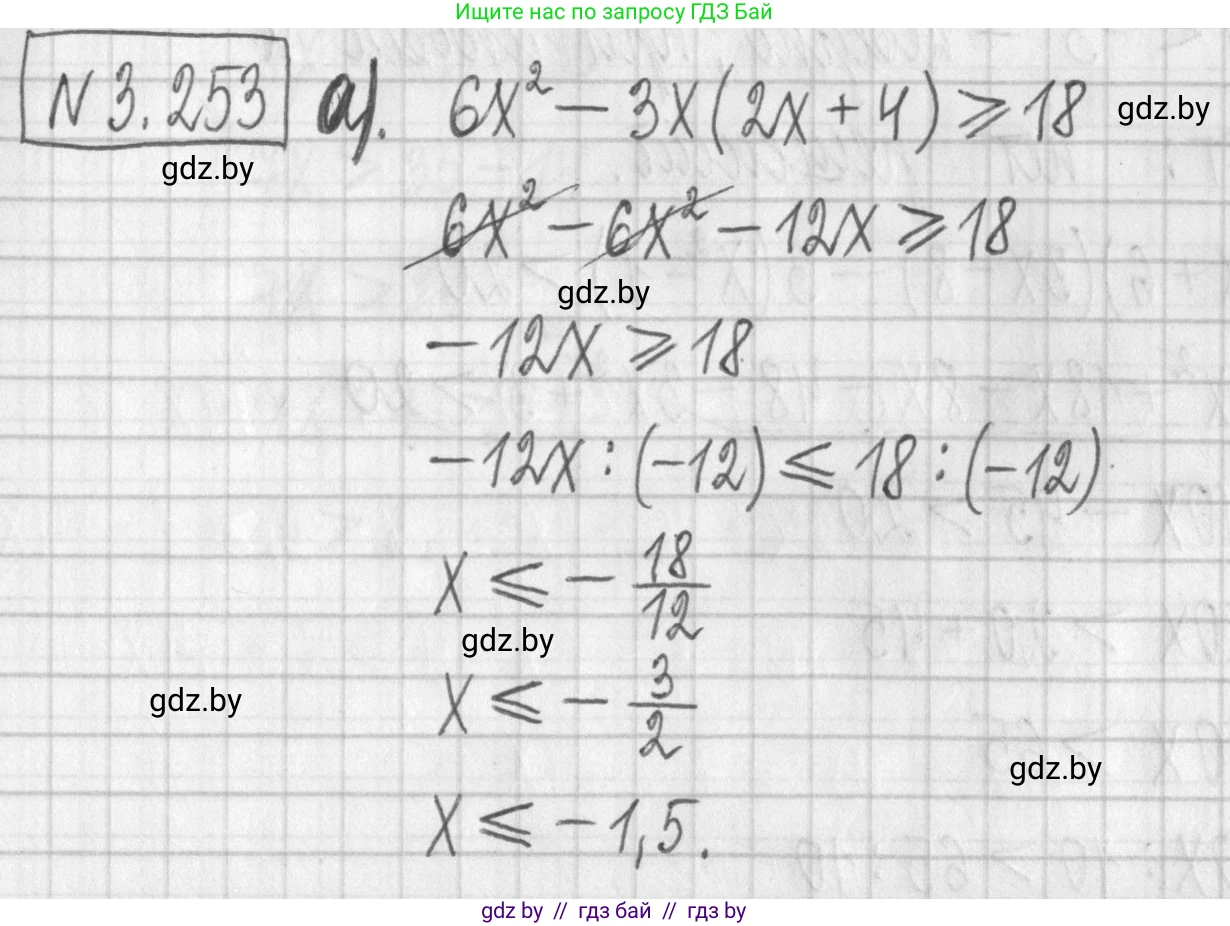 Ищите нас по запросу ГДЗ Бай
N 3.253 а). 6x² - 3x(2x + 4) ⩾ 18 gdz.by
gdz.by
6x² - 6x² - 12x ⩾ 18
gdz.by
-12x ⩾ 18
-12x : (-12) ⩽ 18 : (-12)
x ⩽ - 18/12
gdz.by
gdz.by x ⩽ - 3/2
gdz.by
x ⩽ -1,5.
gdz by // гдз бай // гдз by